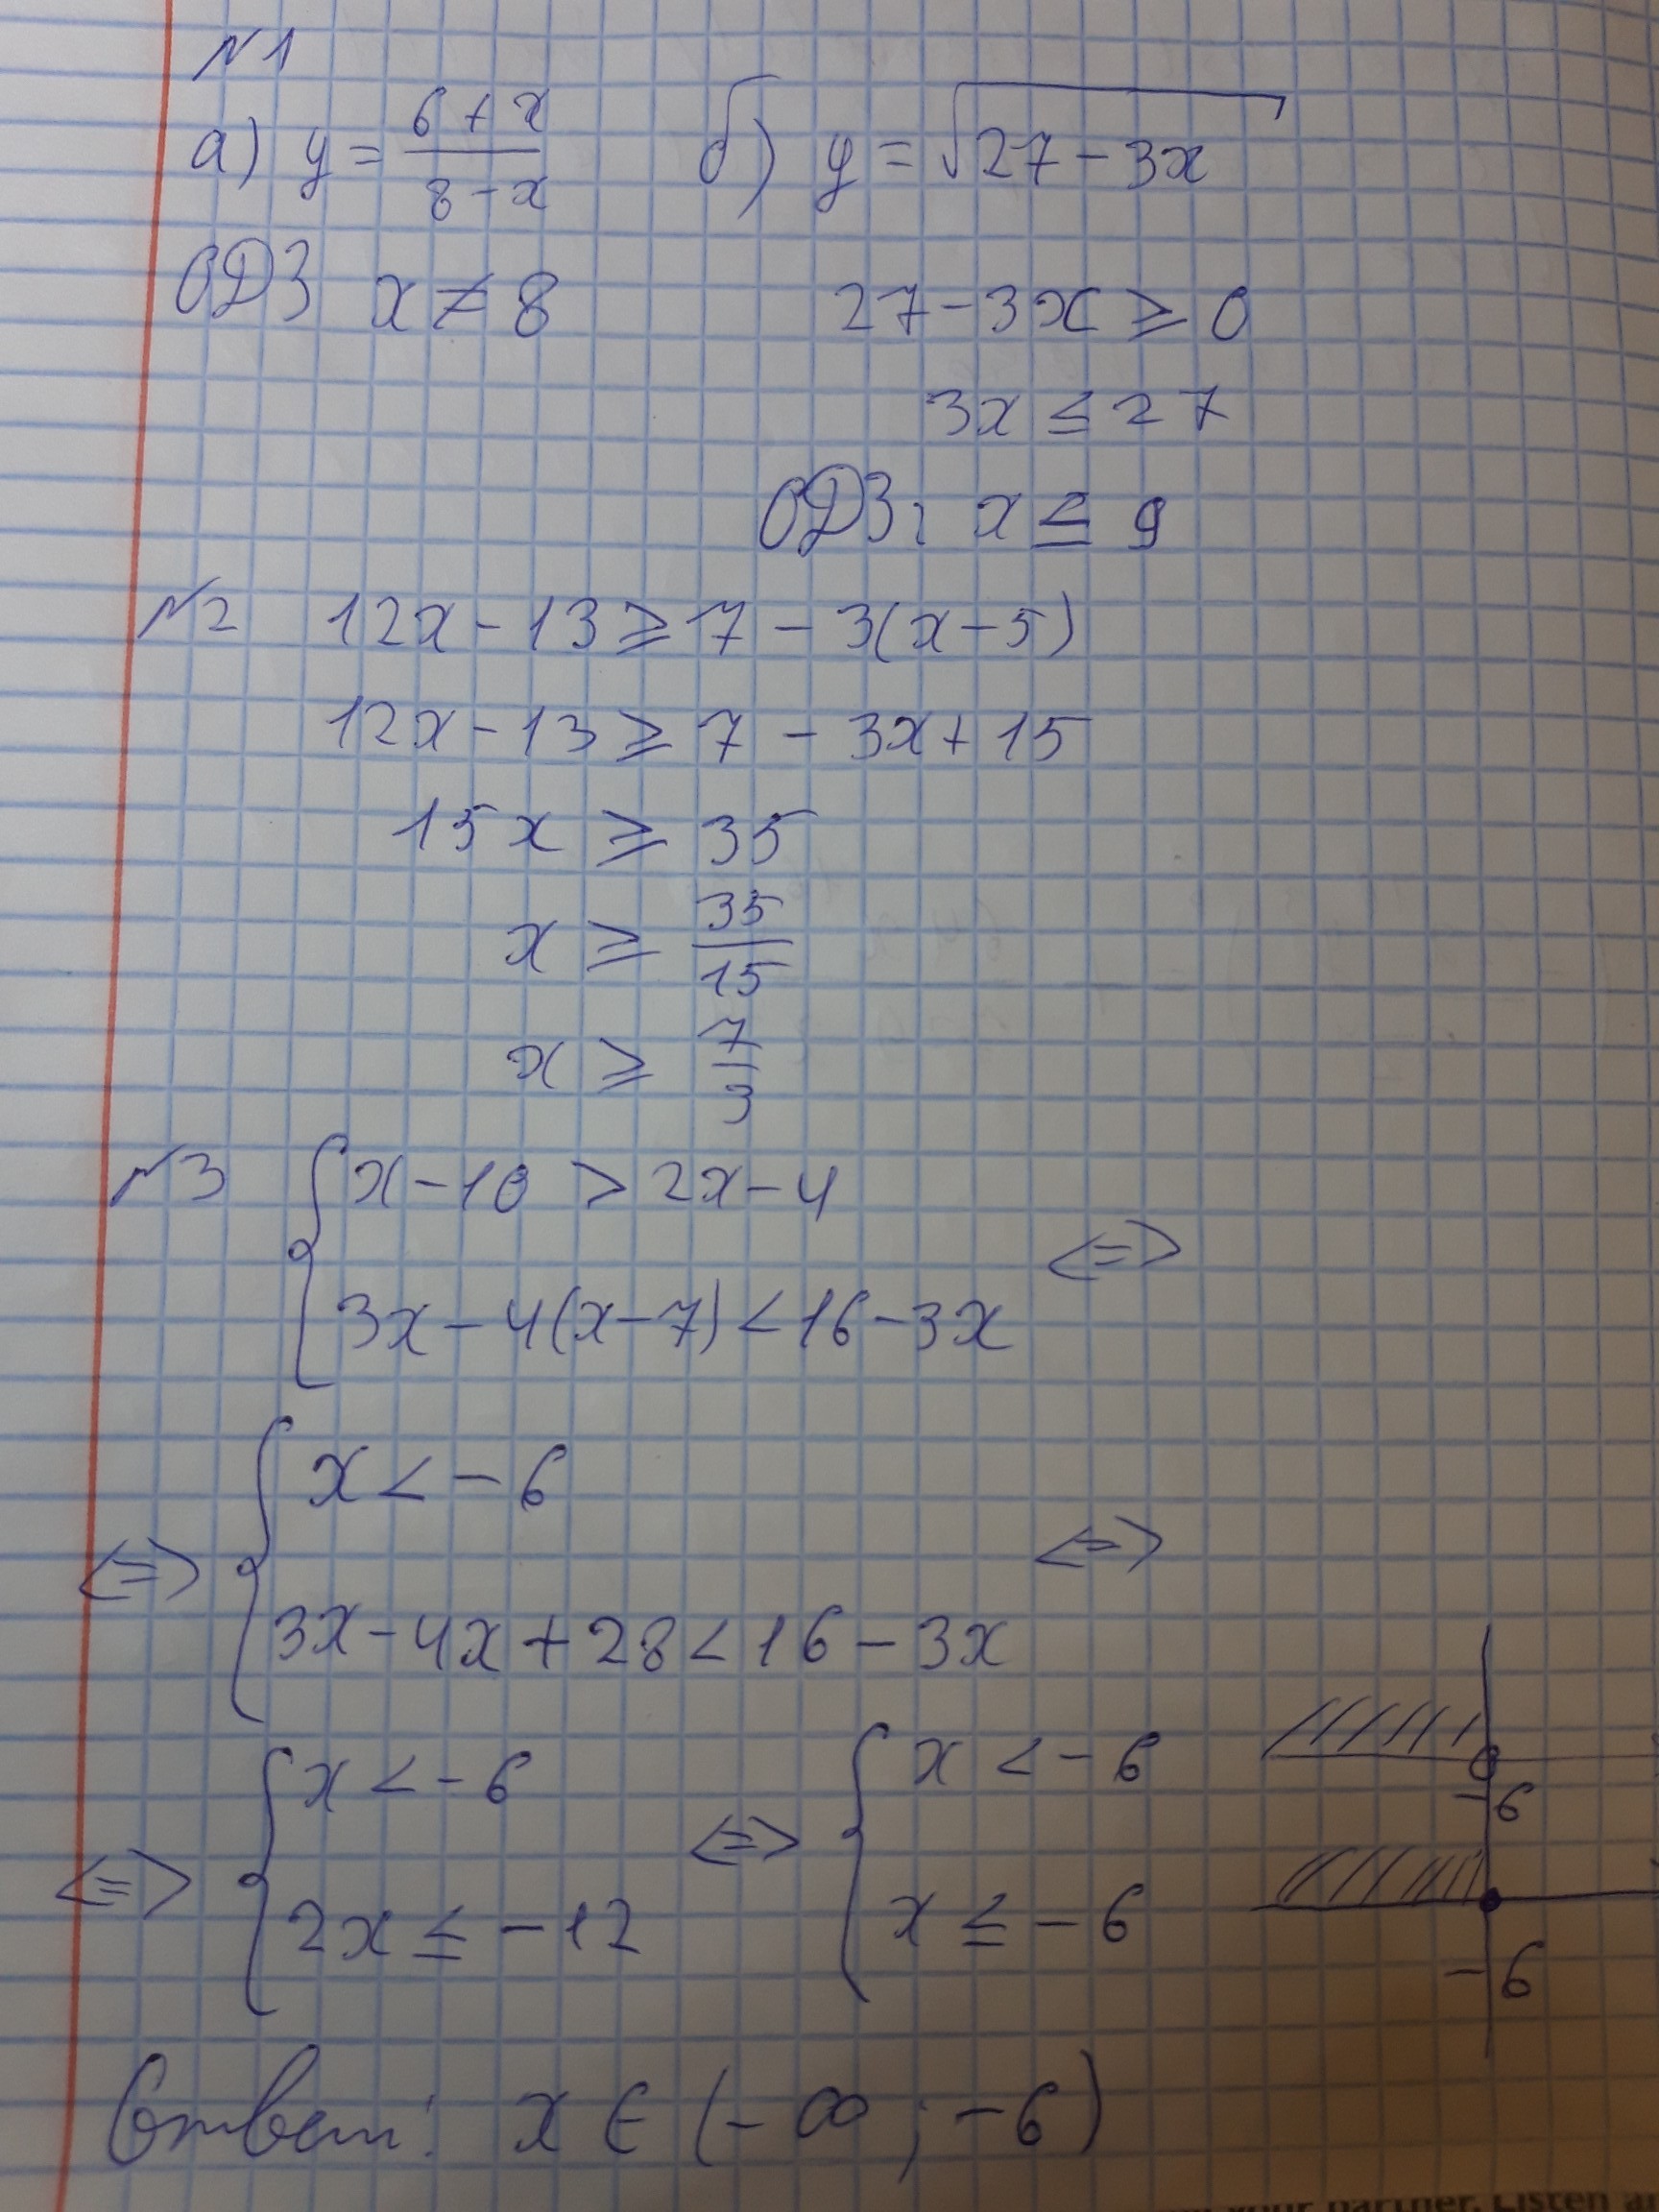 №1
а) y = (6+x)/(8-x)   б) y = √(27-3x)
ОДЗ x ≠ 8   27-3x ≥ 0
3x ≤ 27
ОДЗ: x ≤ 9
№2 12x-13 ≥ 7-3(x-5)
12x-13 ≥ 7-3x+15
15x ≥ 35
x ≥ 35/15
x ≥ 7/3
№3 { x-10 > 2x-4
3x-4(x-7) < 16-3x <=>
<=> { x < -6
3x-4x+28 < 16-3x <=>
<=> { x < -6
2x ≤ -12
<=> { x < -6
x ≤ -6
-6
-6
Ответ: x ∈ (-∞; -6)
your partner. Listen